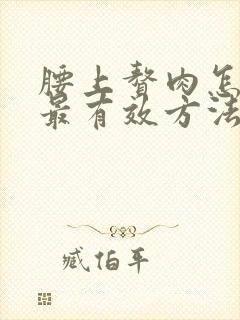 腰上赘肉怎
最有效方法
臧怕年